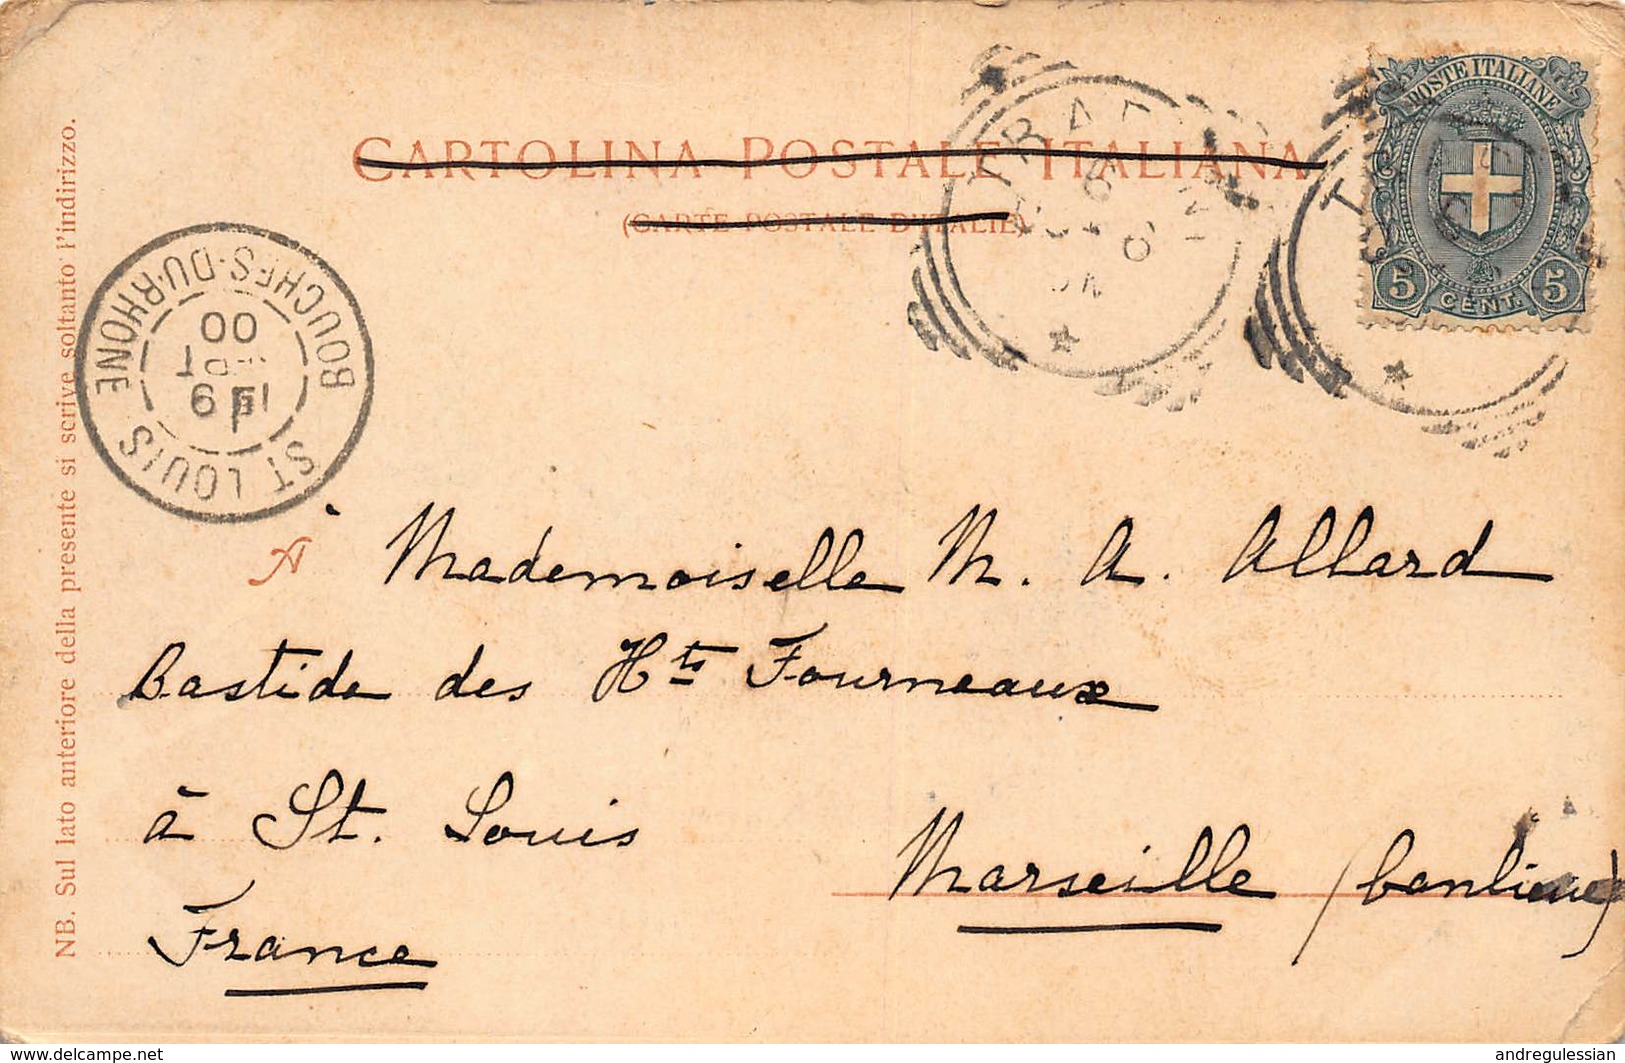 CARTOLINA POSTALE ITALIANA
(CARTE POSTALE D'ITALIE)
POSTE ITALIANE
5 CENT. 5
BOUCHES-DU-RHONE
ST LOUIS
00
NB. Sul lato anteriore della presente si scrive soltanto l'indirizzo.
À Mademoiselle M. A. Allard
Bastide des Hts Fourneaux
à St. Louis
Marseille (banlieue)
France
www.delcampe.net
andregulessian